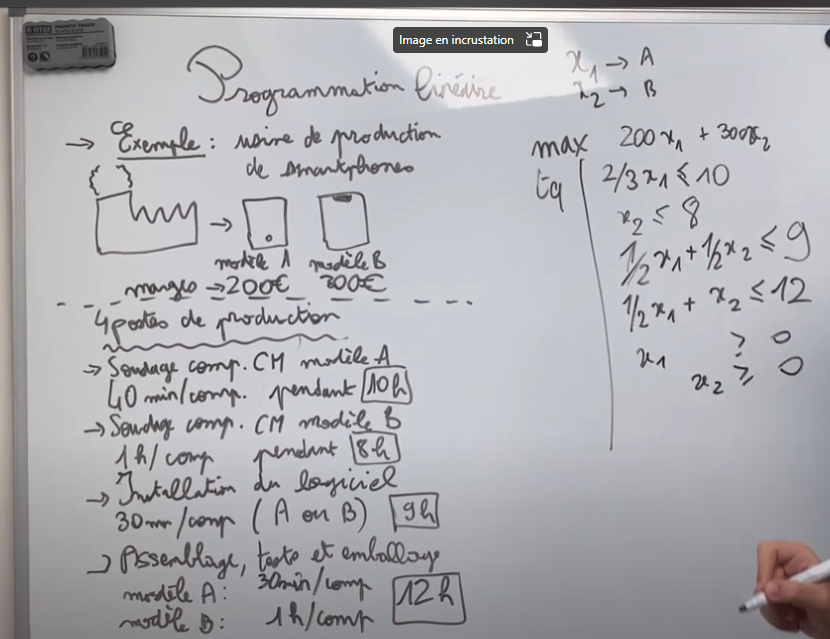 Image en incrustation
Programmation linéaire
x₁ → A
x₂ → B
→ Exemple : usine de production
de smartphones
modèle A modèle B
marges → 200€ 300€
4 postes de production
→ Soudage comp. CM modèle A
40 min/comp. pendant 10h
→ Soudage comp. CM modèle B
1h/comp pendant 8h
→ Installation du logiciel
30mn/comp (A ou B) 9h
→ Assemblage, tests et emballage
modèle A : 30min/comp 12h
modèle B : 1h/comp
max 200x₁ + 300x₂
tq 2/3x₁ ≤ 10
x₂ ≤ 8
1/2x₁ + 1/2x₂ ≤ 9
1/2x₁ + x₂ ≤ 12
x₁ ≥ 0
x₂ ≥ 0